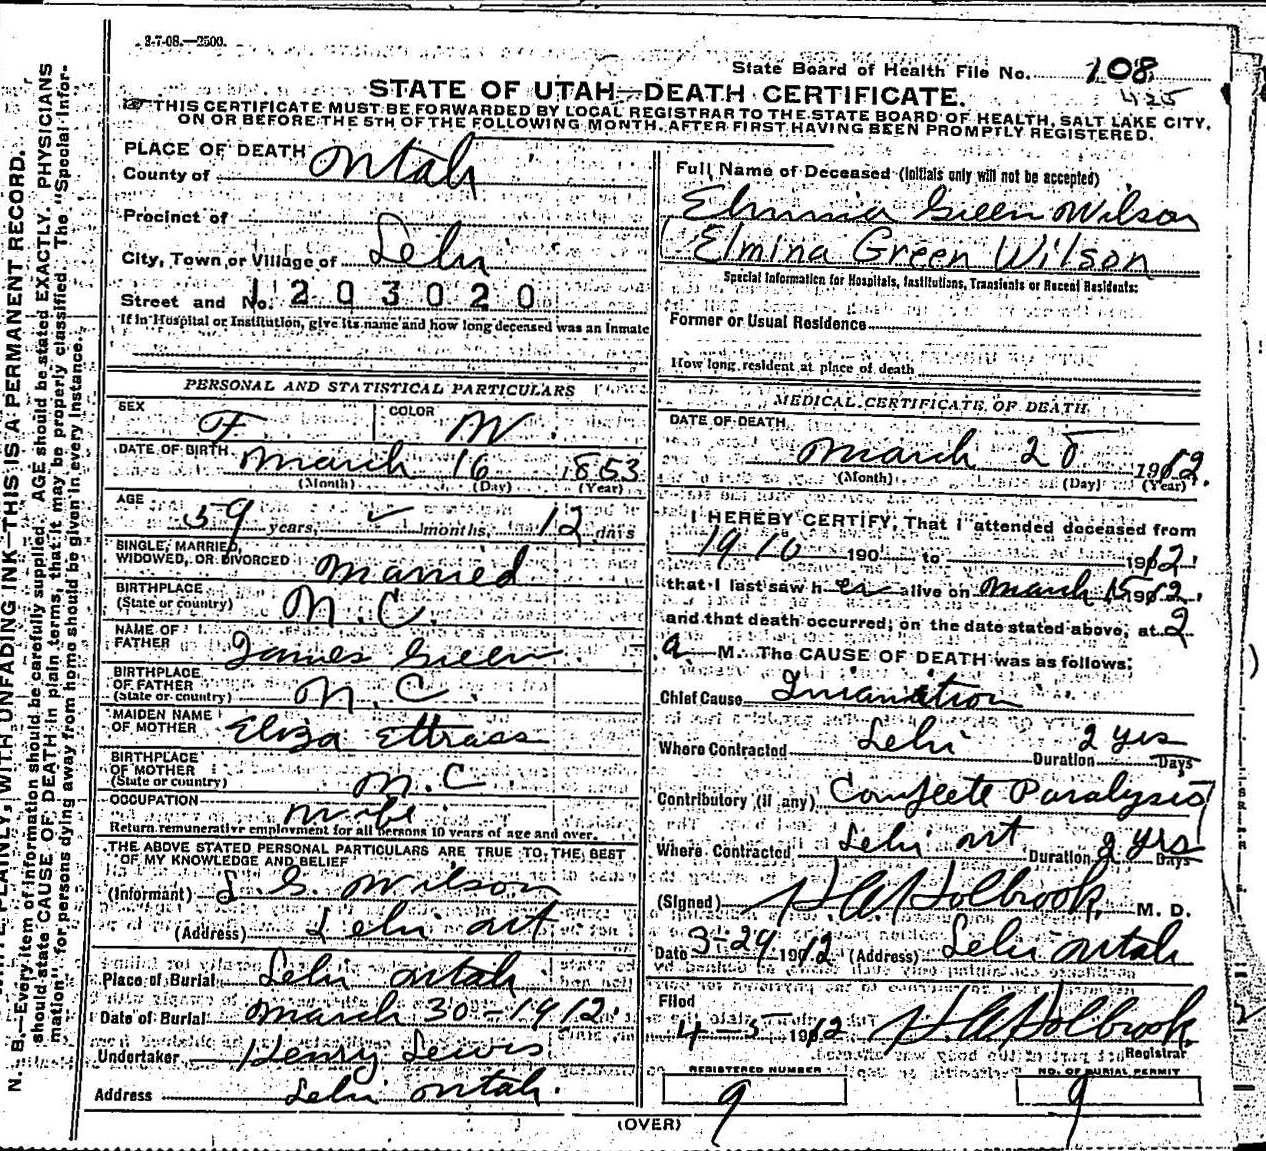 2-7-08.—2500.
State Board of Health File No. 108
425
STATE OF UTAH—DEATH CERTIFICATE.
THIS CERTIFICATE MUST BE FORWARDED BY LOCAL REGISTRAR TO THE STATE BOARD OF HEALTH, SALT LAKE CITY,
ON OR BEFORE THE 5TH OF THE FOLLOWING MONTH, AFTER FIRST HAVING BEEN PROMPTLY REGISTERED.
PLACE OF DEATH
County of Utah
Precinct of
City, Town or Village of Lehi
Street and No. 1203020
If in Hospital or Institution, give its name and how long deceased was an inmate
PERSONAL AND STATISTICAL PARTICULARS
SEX F COLOR W
DATE OF BIRTH March 16 1853
(Month) (Day) (Year)
AGE
59 years, ✓ months, 12 days
SINGLE, MARRIED,
WIDOWED, OR DIVORCED Married
BIRTHPLACE
(State or country) N.C.
NAME OF
FATHER James Green
BIRTHPLACE
OF FATHER
(State or country) N.C.
MAIDEN NAME
OF MOTHER Eliza
BIRTHPLACE
OF MOTHER
(State or country) N.C.
OCCUPATION Wife
Return remunerative employment for all persons 10 years of age and over.
THE ABOVE STATED PERSONAL PARTICULARS ARE TRUE TO THE BEST
OF MY KNOWLEDGE AND BELIEF
(Informant) L. G. Wilson
(Address) Lehi Ut
Place of Burial Lehi Utah
Date of Burial March 30-1912.
Undertaker Henry Lewis
Address Lehi Utah.
Full Name of Deceased (Initials only will not be accepted)
Elmina Green Wilson
Elmina Green Wilson
Special Information for Hospitals, Institutions, Transients or Recent Residents:
Former or Usual Residence
How long resident at place of death
MEDICAL CERTIFICATE OF DEATH
DATE OF DEATH
March 28 1912.
(Month) (Day) (Year)
I HEREBY CERTIFY, That I attended deceased from
1910 190 to 1912.
that I last saw her alive on March 15 1912.
and that death occurred, on the date stated above, at 2
a M. The CAUSE OF DEATH was as follows:
Chief Cause Inanition
Where Contracted Lehi Duration 2 yrs Days
Contributory (if any) Complete Paralysis
Where Contracted Lehi Ut Duration 2 yrs Days
(Signed) H.A. Holbrook M. D.
Date 3-29 1912 (Address) Lehi Utah
Filed
4-5 1912 H.A. Holbrook
Registrar
REGISTERED NUMBER
9
NO. OF BURIAL PERMIT
9
(OVER)
N. B.—Every item of information should be carefully supplied. AGE should be stated EXACTLY. PHYSICIANS
should state CAUSE OF DEATH in plain terms, that it may be properly classified. The "Special Infor-
mation" for persons dying away from home should be given in every instance.
PLAINLY, WITH UNFADING INK—THIS IS A PERMANENT RECORD.